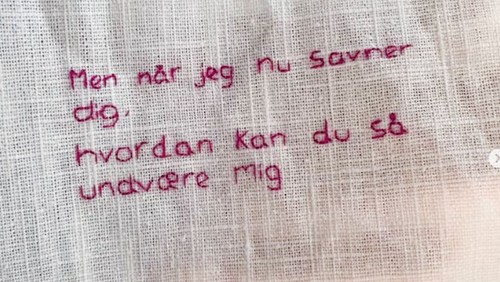 Men når jeg nu savner
dig.
hvordan kan du så
undvære mig